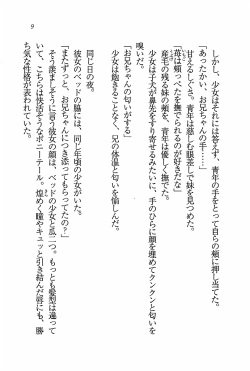 9
しかし、少女はそれには答えず、青年の手をとって自らの頬に押し当てた。
「あったかい、お兄ちゃんの手……」
甘えるしぐさ。青年は慈しむ眼差しで妹を見つめた。
「○は頬っぺたを撫でられるのが好きだな」
産毛の残る妹の頬を、青年は優しく撫でた。
「お兄ちゃんの匂いがする」
少女は子犬が鼻先をすり寄せるみたいに、手のひらに顔を埋めてクンクンと匂いを
嗅いだ。
少女は飽きることなく、兄の体温と匂いを愉しんだ。
同じ日の夜。
彼女のベッドの脇には、同じ年頃の少女がいた。
「またずっと、お兄ちゃんにつき添ってもらってたの？」
そう羨ましそうに言う彼女の顔は、ベッドの少女と瓜二つ。もっとも髪型は違って
いて、こちらは快活そうなポニーテール。煌めく瞳やキュッと引き結んだ唇にも、勝
ち気な性格が表われていた。